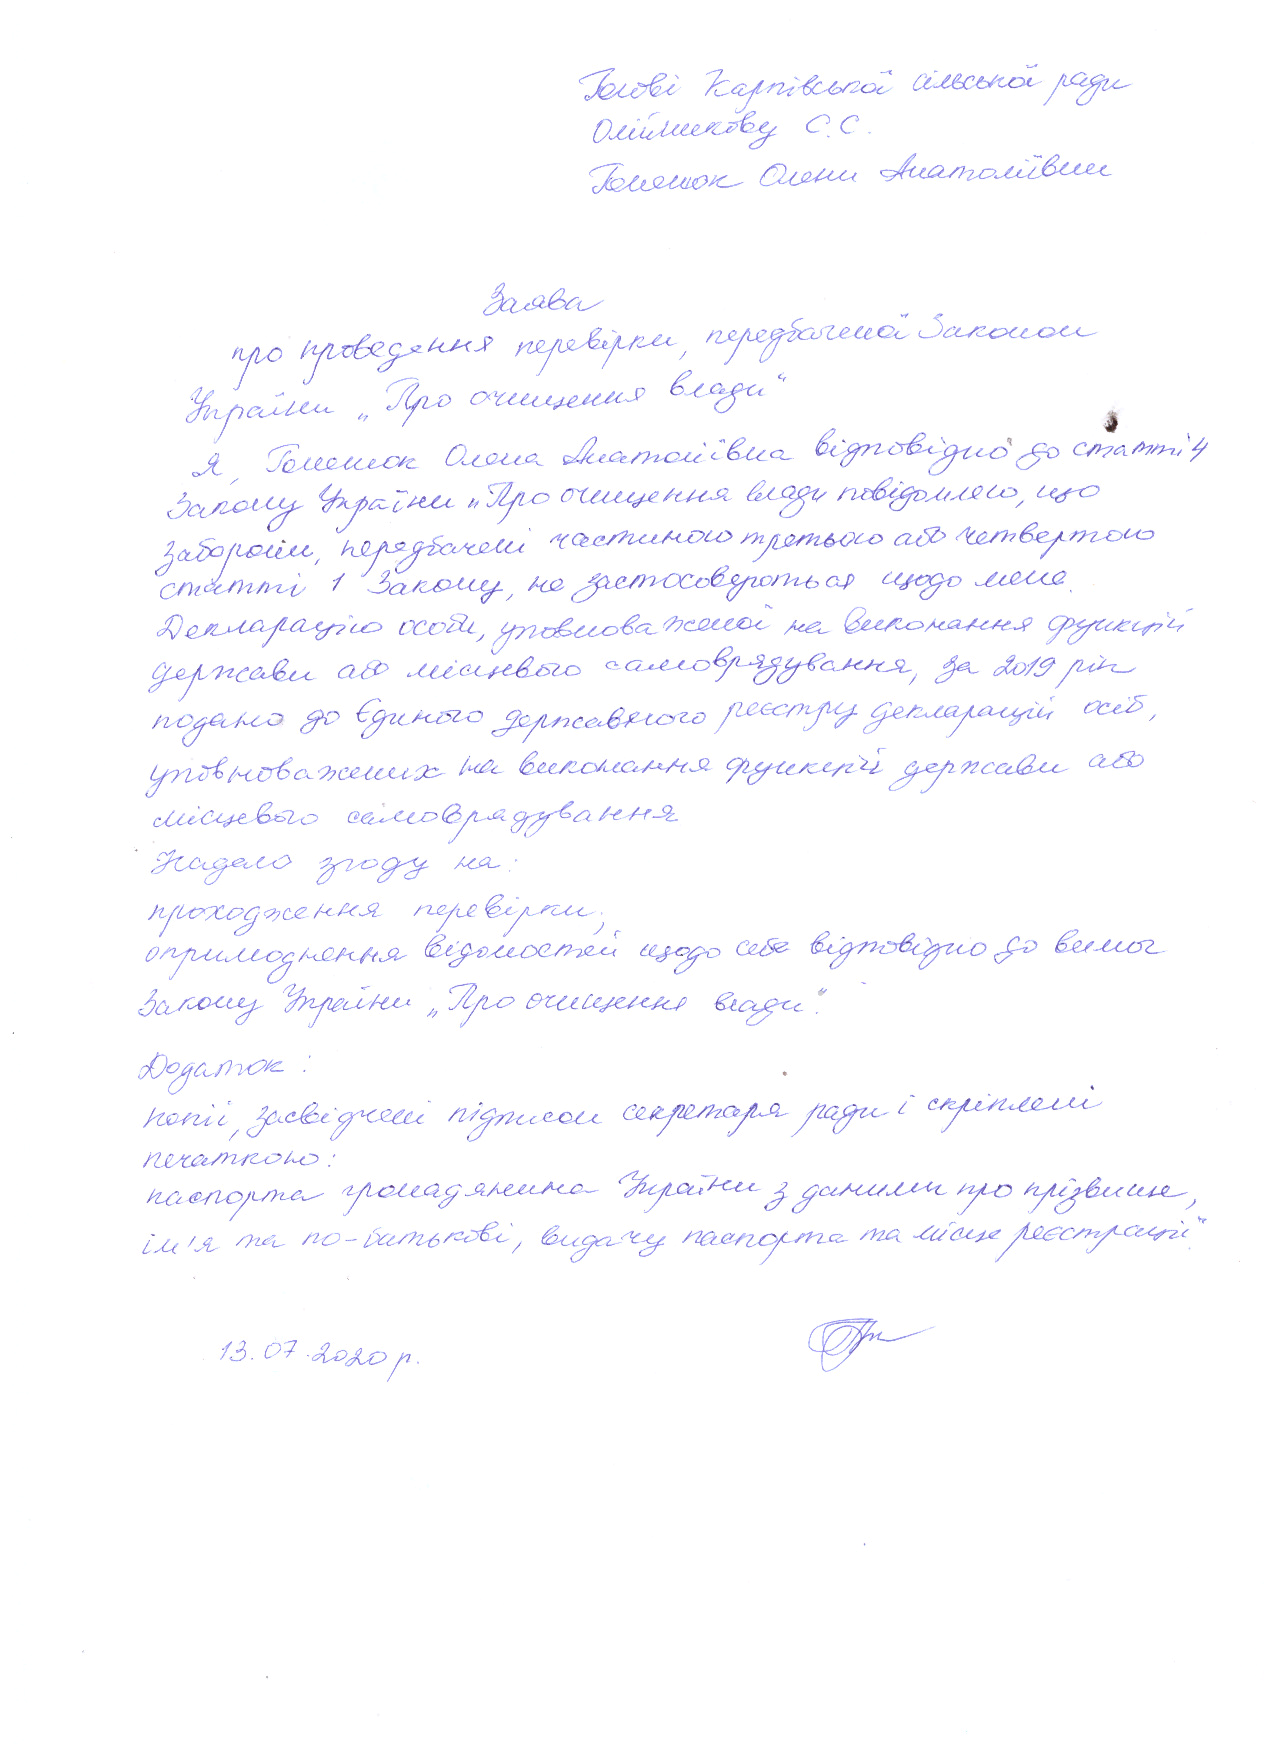 Голові Карпівської сільської ради
Олійникову С.С.
Гоменюк Олени Анатоліївни
Заява
про проведення перевірки, передбаченої Законом
України „Про очищення влади“
Я, Гоменюк Олена Анатоліївна відповідно до статті 4
Закону України „Про очищення влади повідомляю, що
заборони, передбачені частиною третьою або четвертою
статті 1 Закону, не застосовуються щодо мене.
Декларацію особи, уповноваженої на виконання функцій
держави або місцевого самоврядування, за 2019 рік
подано до Єдиного державного реєстру декларацій осіб,
уповноважених на виконання функцій держави або
місцевого самоврядування
Надаю згоду на:
проходження перевірки;
оприлюднення відомостей щодо себе відповідно до вимог
Закону України „Про очищення влади“.
Додаток:
копії, засвідчені підписом секретаря ради і скріплені
печаткою:
паспорта громадянина України з даними про прізвище,
ім'я та по-батькові, видачу паспорта та місце реєстрації“
13.07.2020 р.